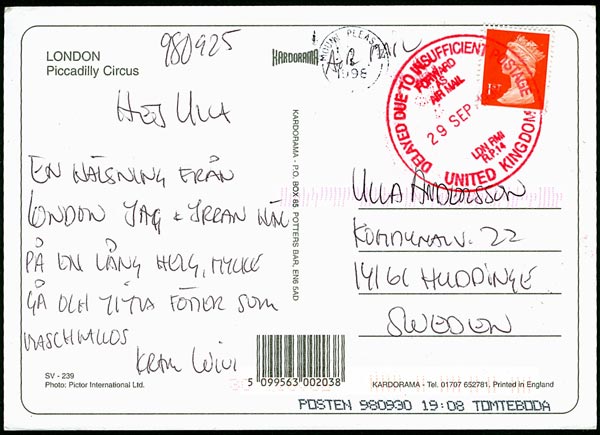 LONDON
Piccadilly Circus
980925
HEJ ULLA
EN HÄLSNING FRÅN
LONDON JAG +
PÅ EN LÅNG HELG, MYCKE
GÅ OCH FÖTTER SOM

KRAM
SV - 239
Photo: Pictor International Ltd.
KARDORAMA
KARDORAMA - P.O. BOX 85 POTTERS BAR, EN6 5AD
MOUNT PLEASANT
1998
AIR MAIL
DELAYED DUE TO INSUFFICIENT POSTAGE
FORWARD
AS
AIR MAIL
29 SEP
LDN RMI
R.P.14
UNITED KINGDOM
1ST
ULLA ANDERSSON
KOMMUNALV. 22
14161 HUDDINGE
SWEDEN
5 099563 002038
KARDORAMA - Tel. 01707 652781. Printed in England
POSTEN 980930 19:08 TOMTEBODA